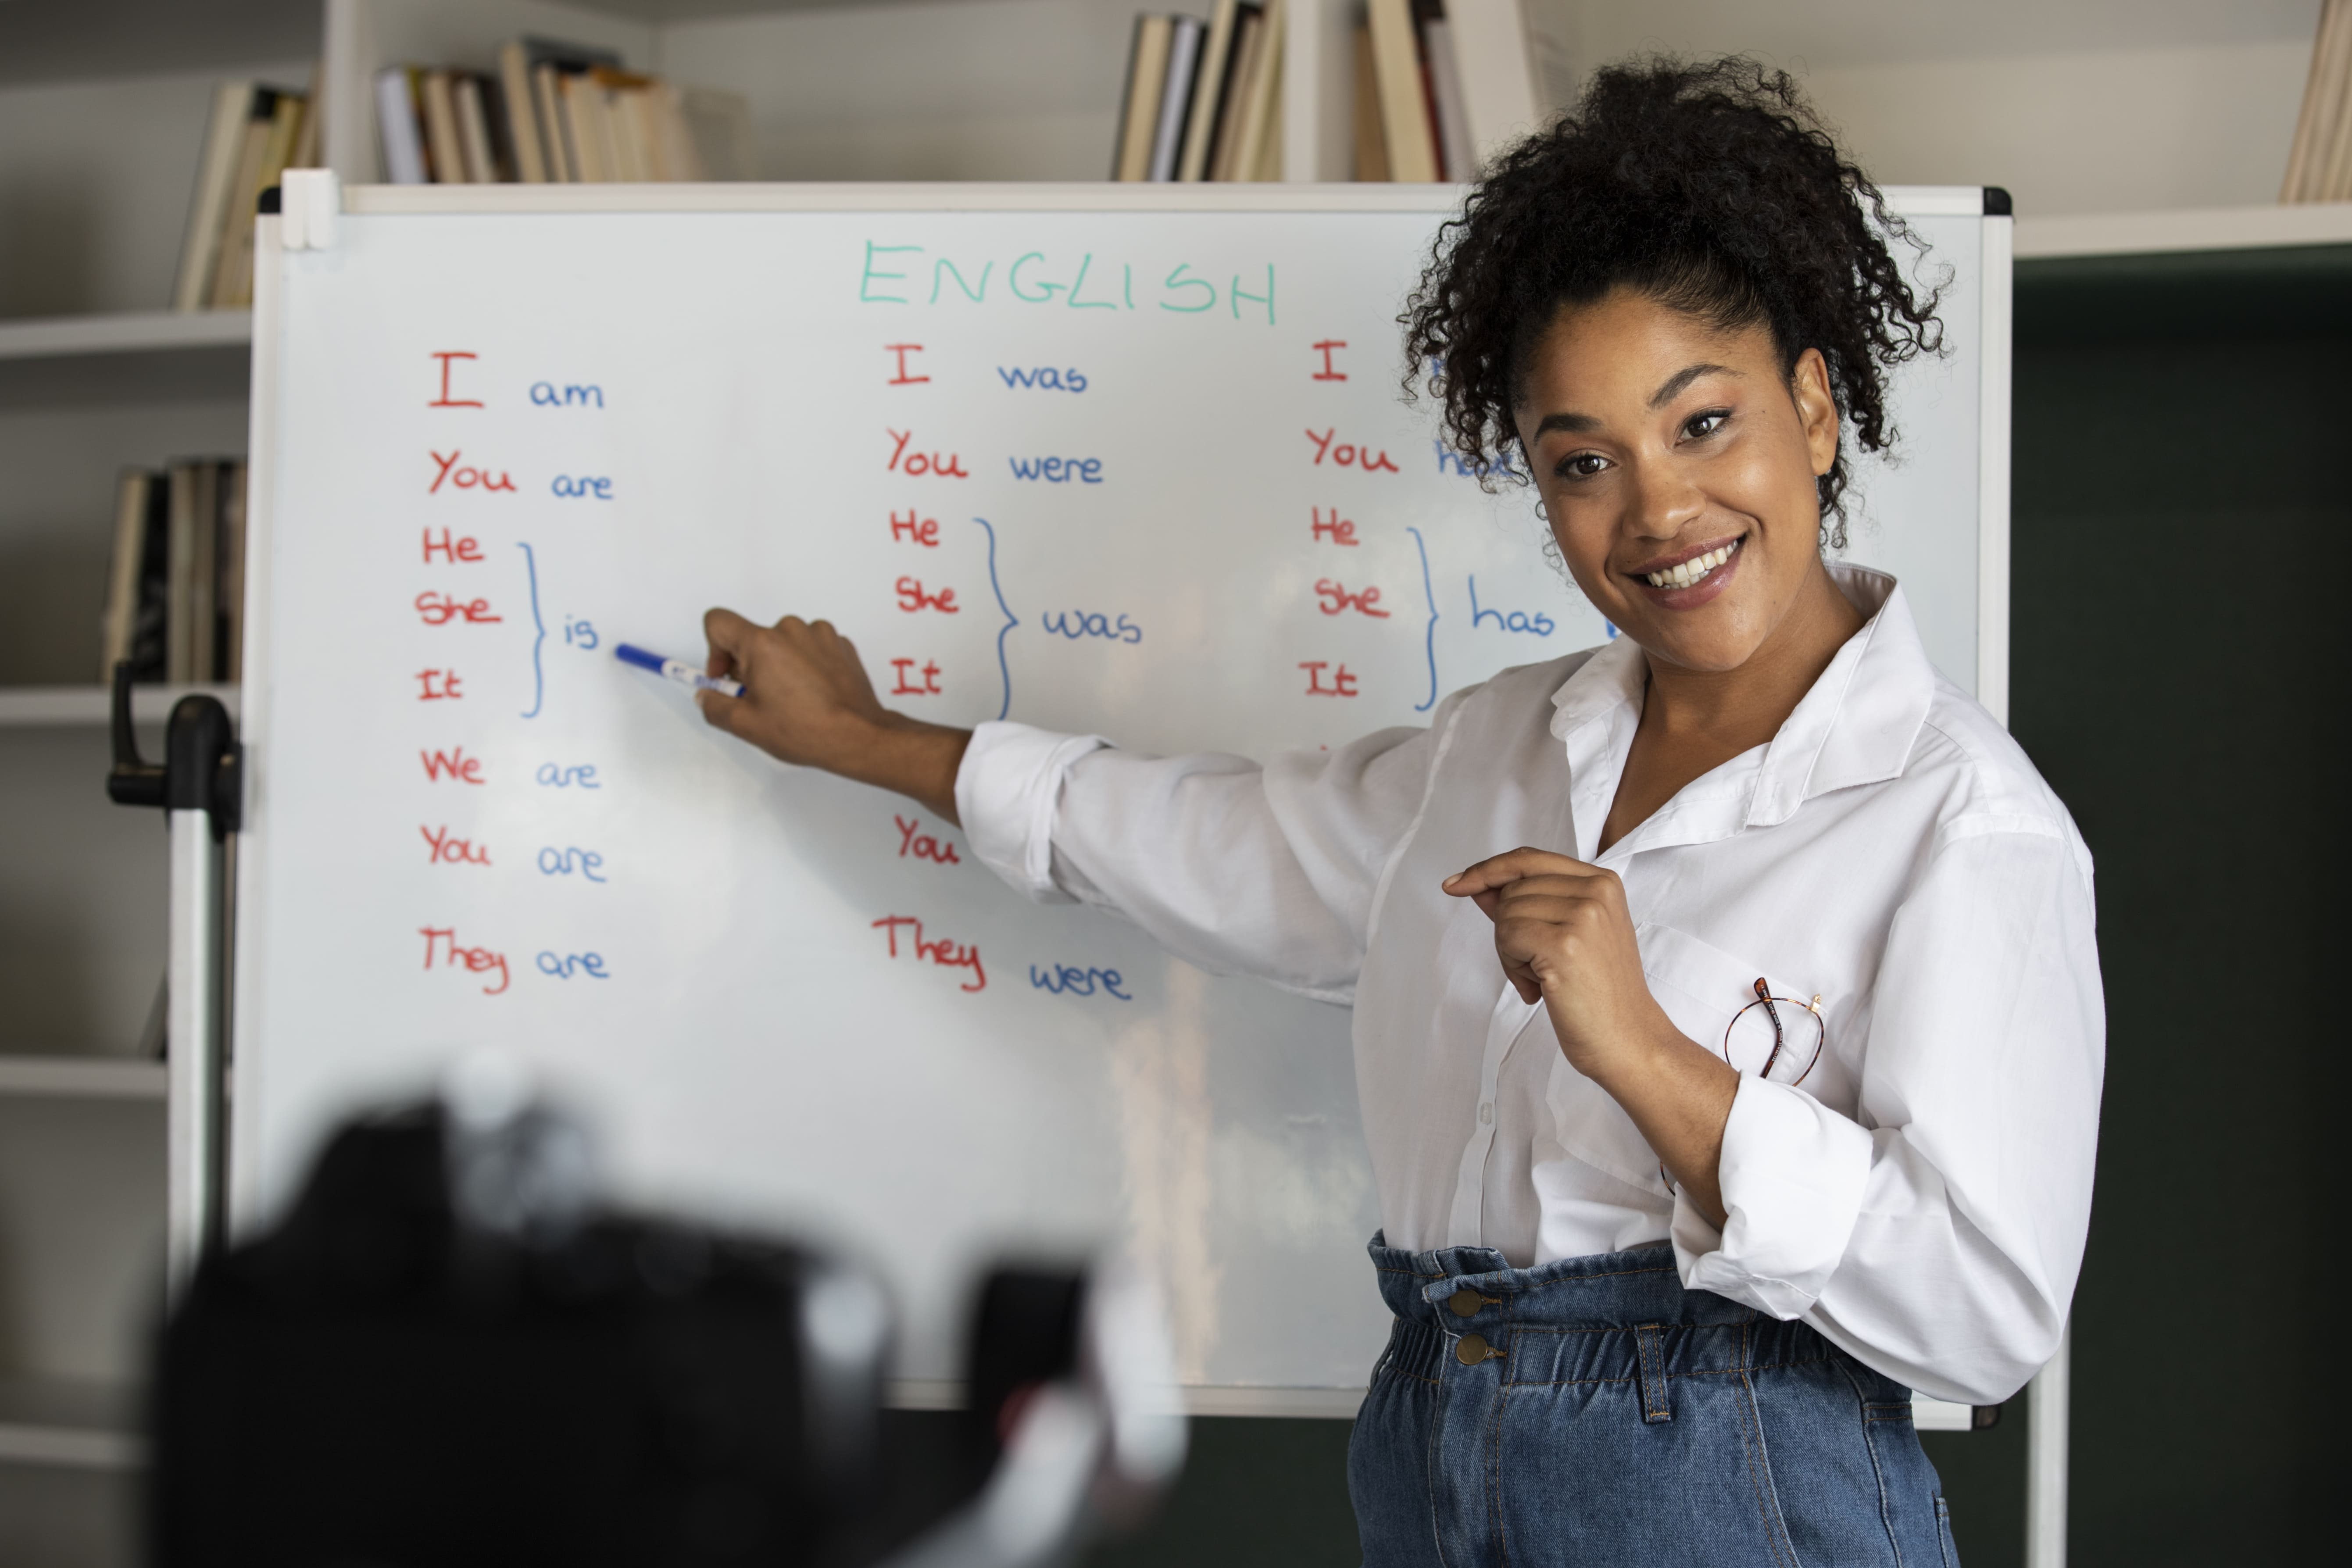 ENGLISH
I am
You are
He
She
It
is
We are
You are
They are
I was
You were
He
She
It
was
You
They were
I
You have
He
She
It
has